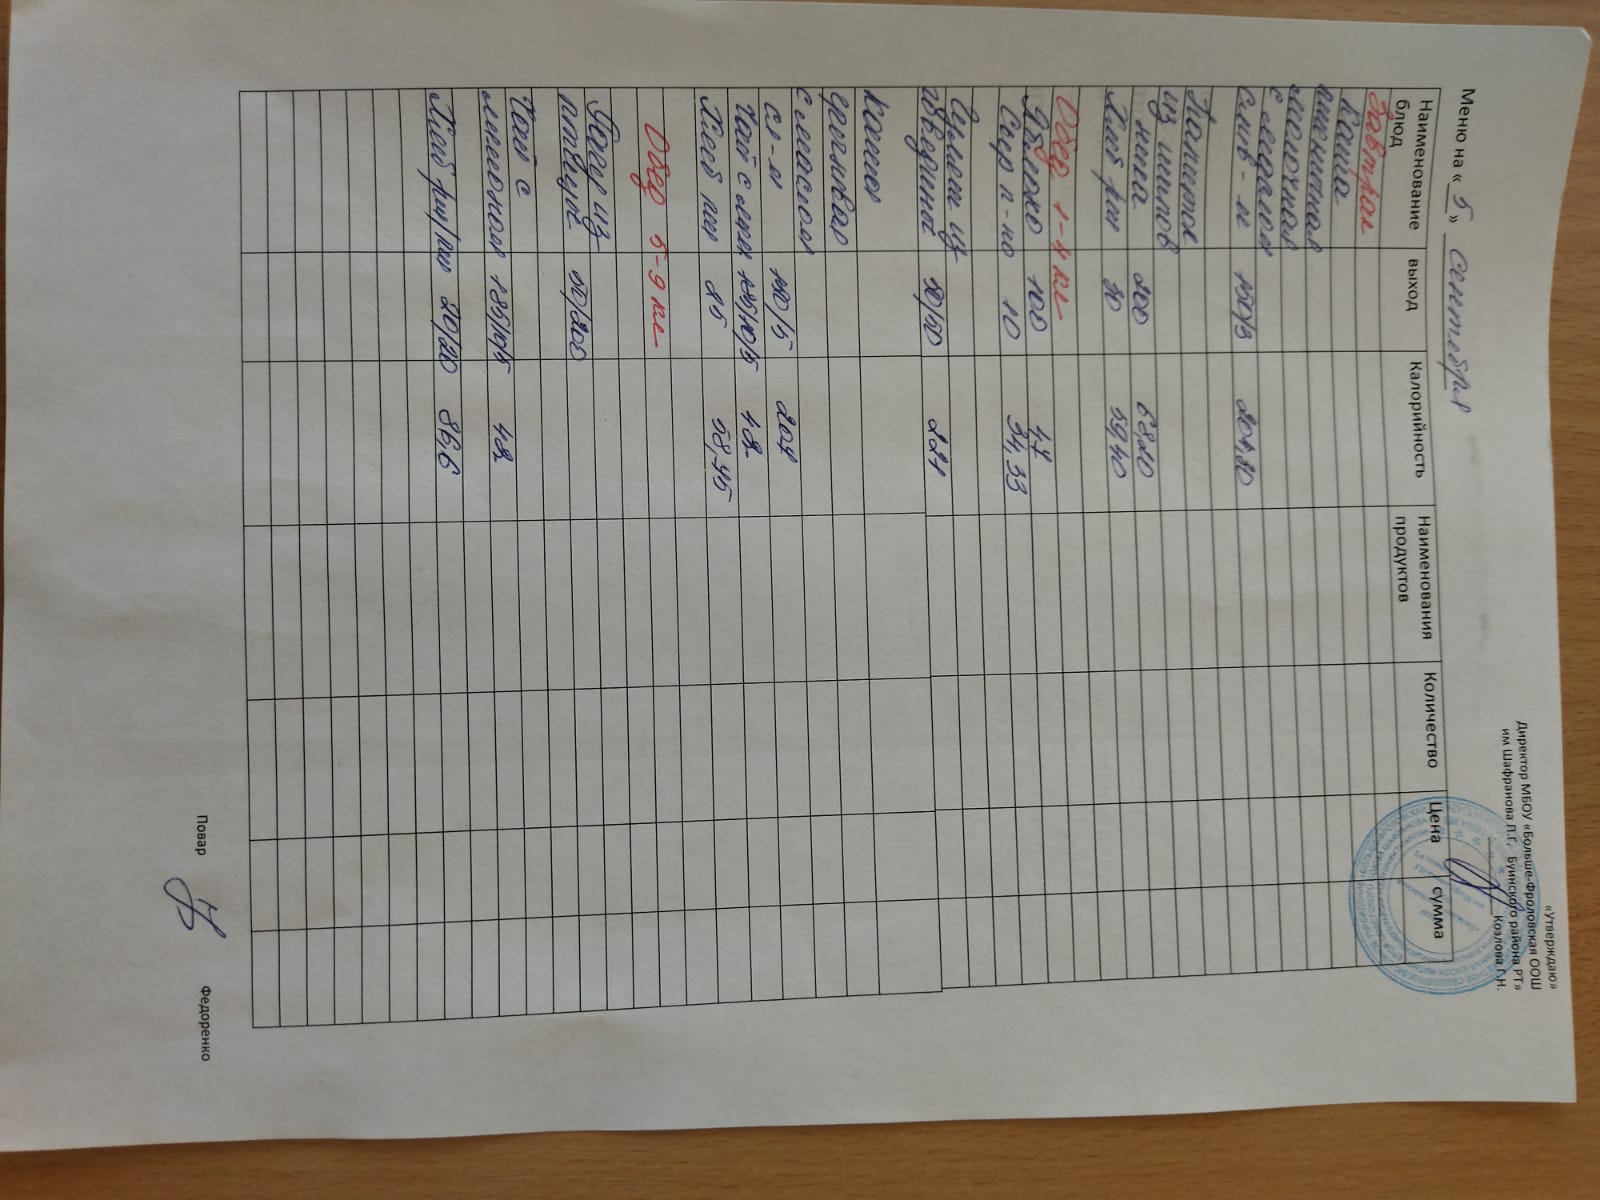 «Утверждаю»
Директор МБОУ «Больше-Фроловская ООШ
им Шафранова П.Г. Буинского района РТ»
Козлова Г.Н.
Меню на « 5 » сентября
Наименование блюд выход Калорийность Наименования продуктов Количество Цена сумма
Завтрак
Каша
пшенная
молочная
с маслом
слив-м 150/3 204,80
Напиток
из шипов
ника 200 68,20
Хлеб рж 30 59,40
Обед 1-4 кл
Яблоко 100 47
Сыр п-но 10 34,33
Гуляш из
говядины 50/50 221
Каша
гречневая
с маслом
сл-м 150/5 204
Чай с лим 185/10/5 48
Хлеб пш 25 58,45
Обед 5-9 кл
Плов из
птицы 50/200
Чай с
лимоном 185/10/5 48
Хлеб рж/пш 20/20 86,6
Повар Федоренко